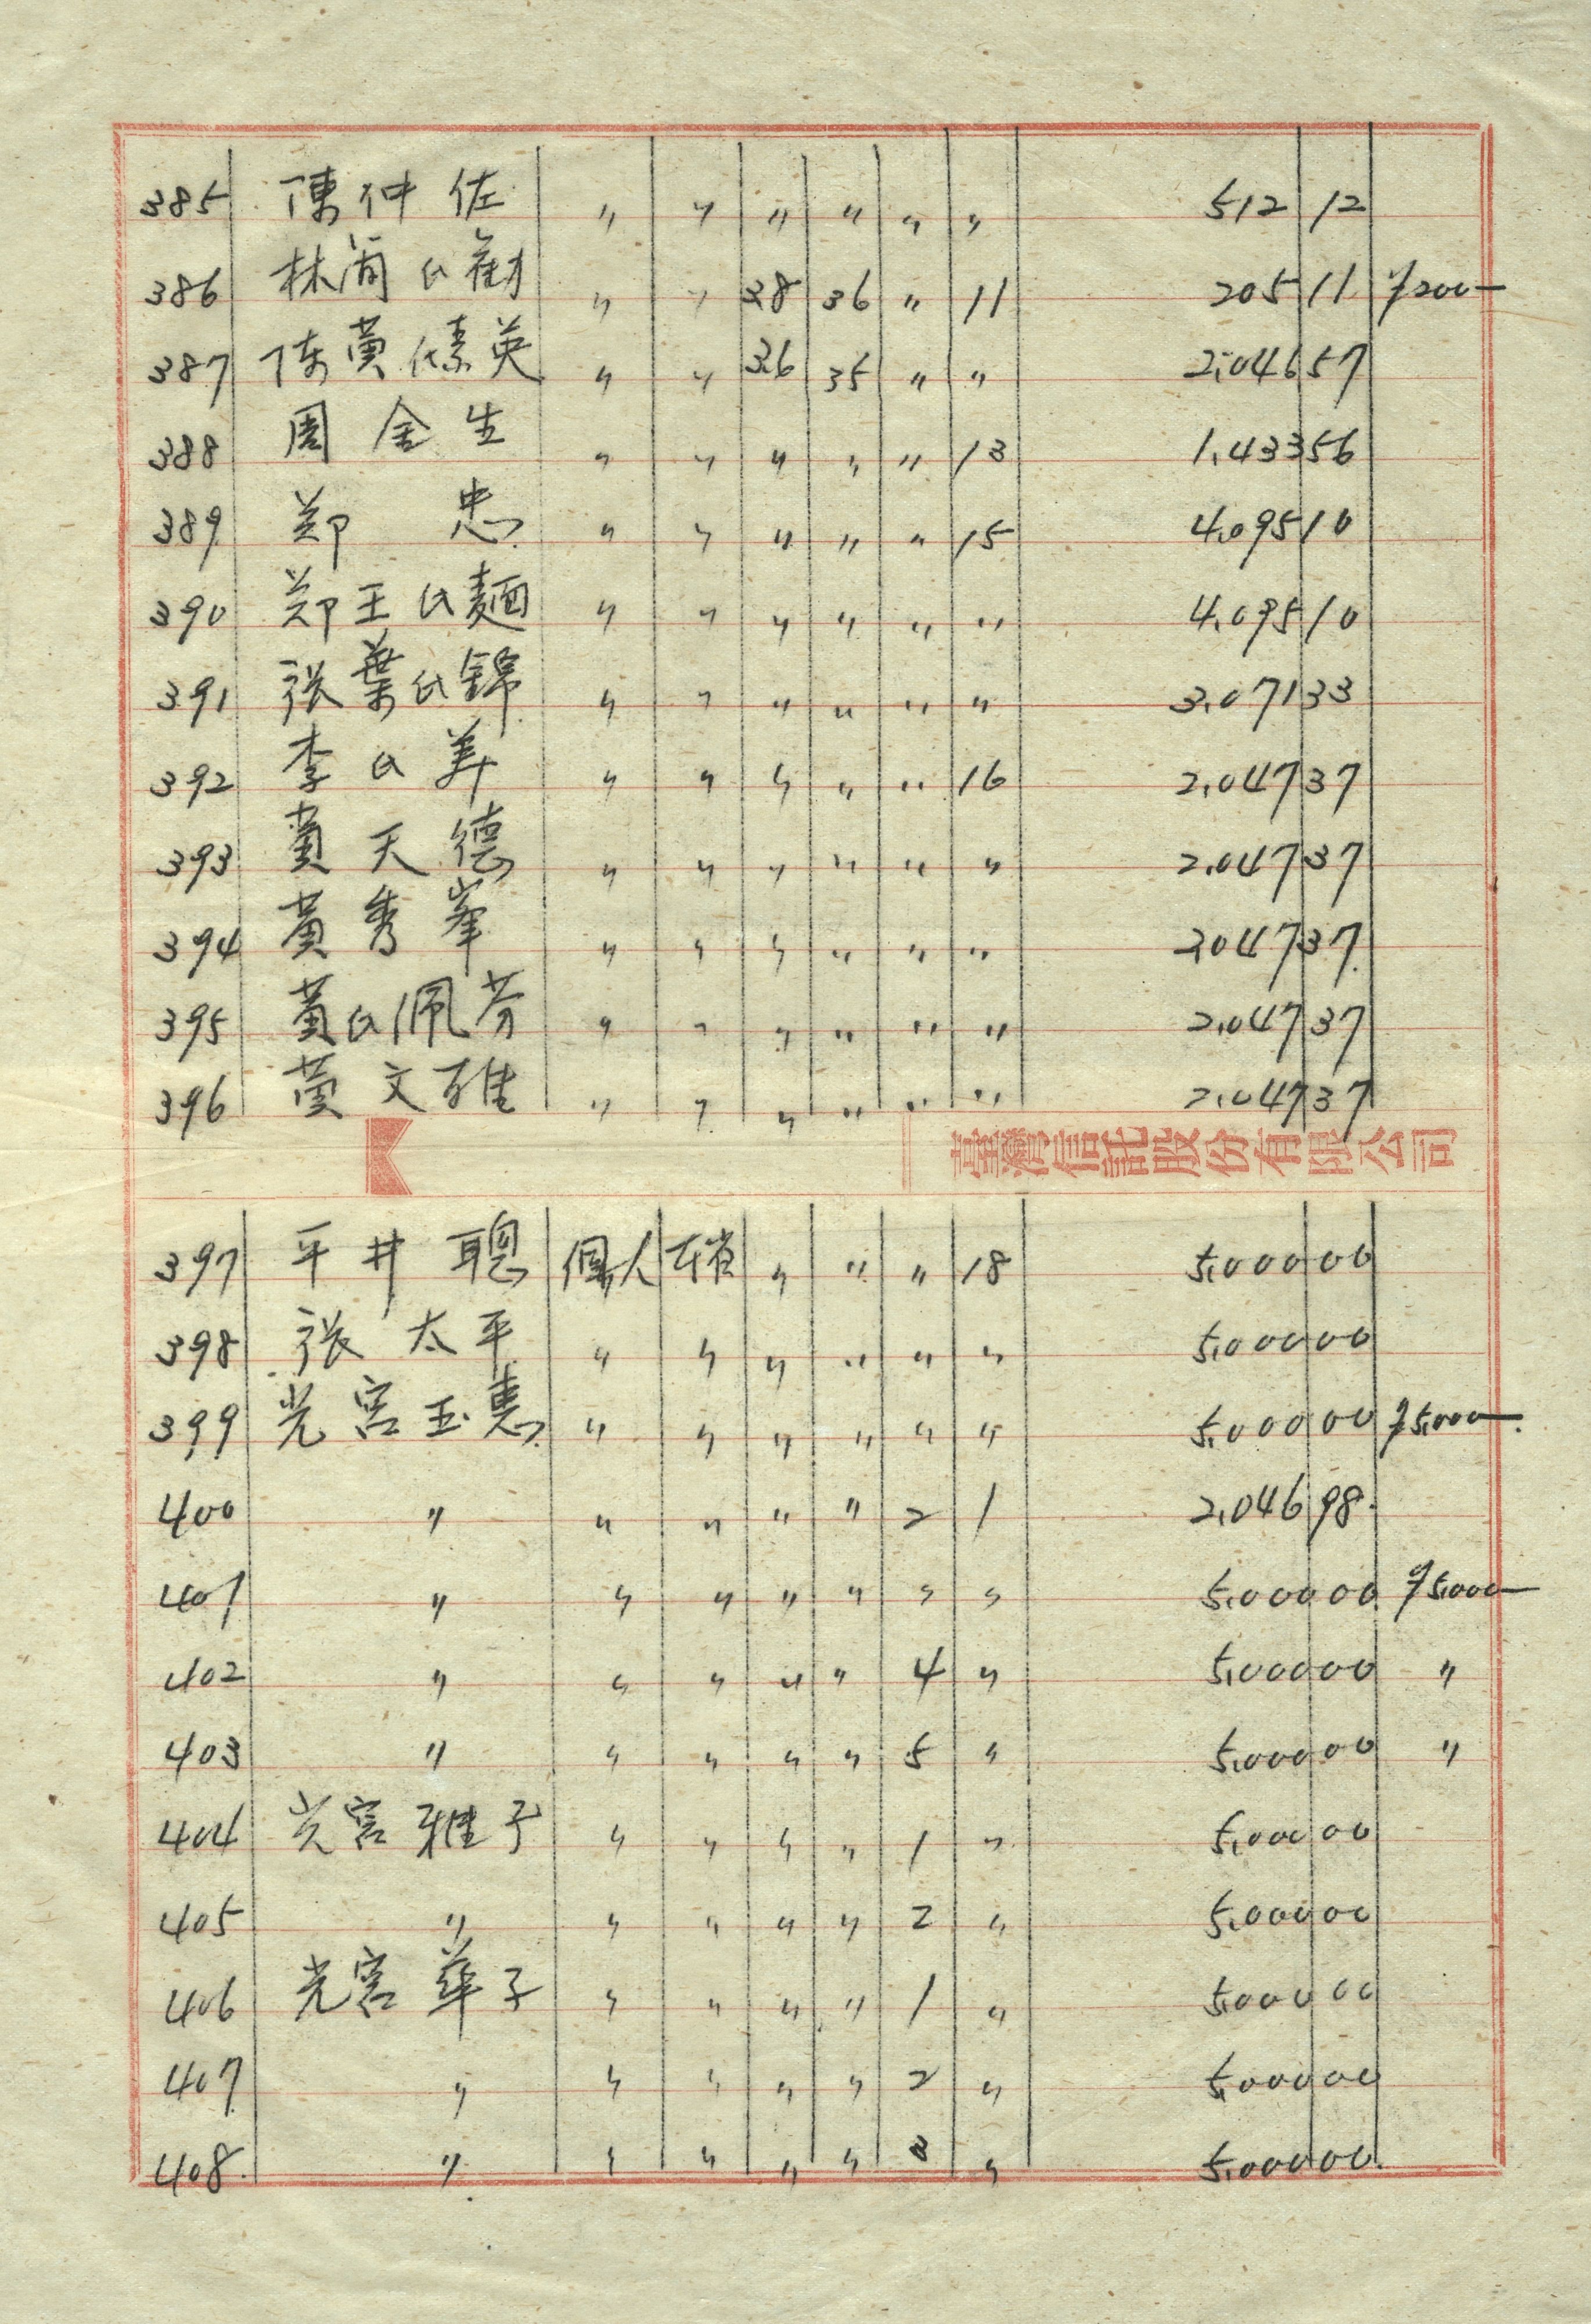 385 陳仲佐 〃 〃 〃 〃 〃 〃 512 12
386 林簡氏勸 〃 〃 38 36 〃 11 205 11 200—
387 陳黄氏素英 〃 〃 36 35 〃 〃 2,046 57
388 周金生 〃 〃 〃 〃 〃 13 1,433 56
389 鄭忠 〃 〃 〃 〃 〃 15 4,095 10
390 鄭王氏麵 〃 〃 〃 〃 〃 〃 4,095 10
391 張葉氏錦 〃 〃 〃 〃 〃 〃 3,071 33
392 李氏 〃 〃 〃 〃 〃 16 2,047 37
393 黄天德 〃 〃 〃 〃 〃 〃 2,047 37
394 黄秀峯 〃 〃 〃 〃 〃 〃 2,047 37
395 黄氏佩芬 〃 〃 〃 〃 〃 〃 2,047 37
396 黄文雅 〃 〃 〃 〃 〃 〃 2,047 37
臺灣信託股份有限公司
397 平井聰 個人 〃 〃 〃 18 5,000 00
398 張太平 〃 〃 〃 〃 〃 〃 5,000 00
399 光宮玉惠 〃 〃 〃 〃 〃 〃 5,000 00 5,000—
400 〃 〃 〃 〃 〃 2 1 2,046 98
401 〃 〃 〃 〃 〃 〃 〃 5,000 00 5,000—
402 〃 〃 〃 〃 〃 4 〃 5,000 00 〃
403 〃 〃 〃 〃 〃 5 〃 5,000 00 〃
404 光宮雅子 〃 〃 〃 〃 1 〃 5,000 00
405 〃 〃 〃 〃 〃 2 〃 5,000 00
406 光宮華子 〃 〃 〃 〃 1 〃 5,000 00
407 〃 〃 〃 〃 〃 2 〃 5,000 00
408 〃 〃 〃 〃 〃 3 〃 5,000 00